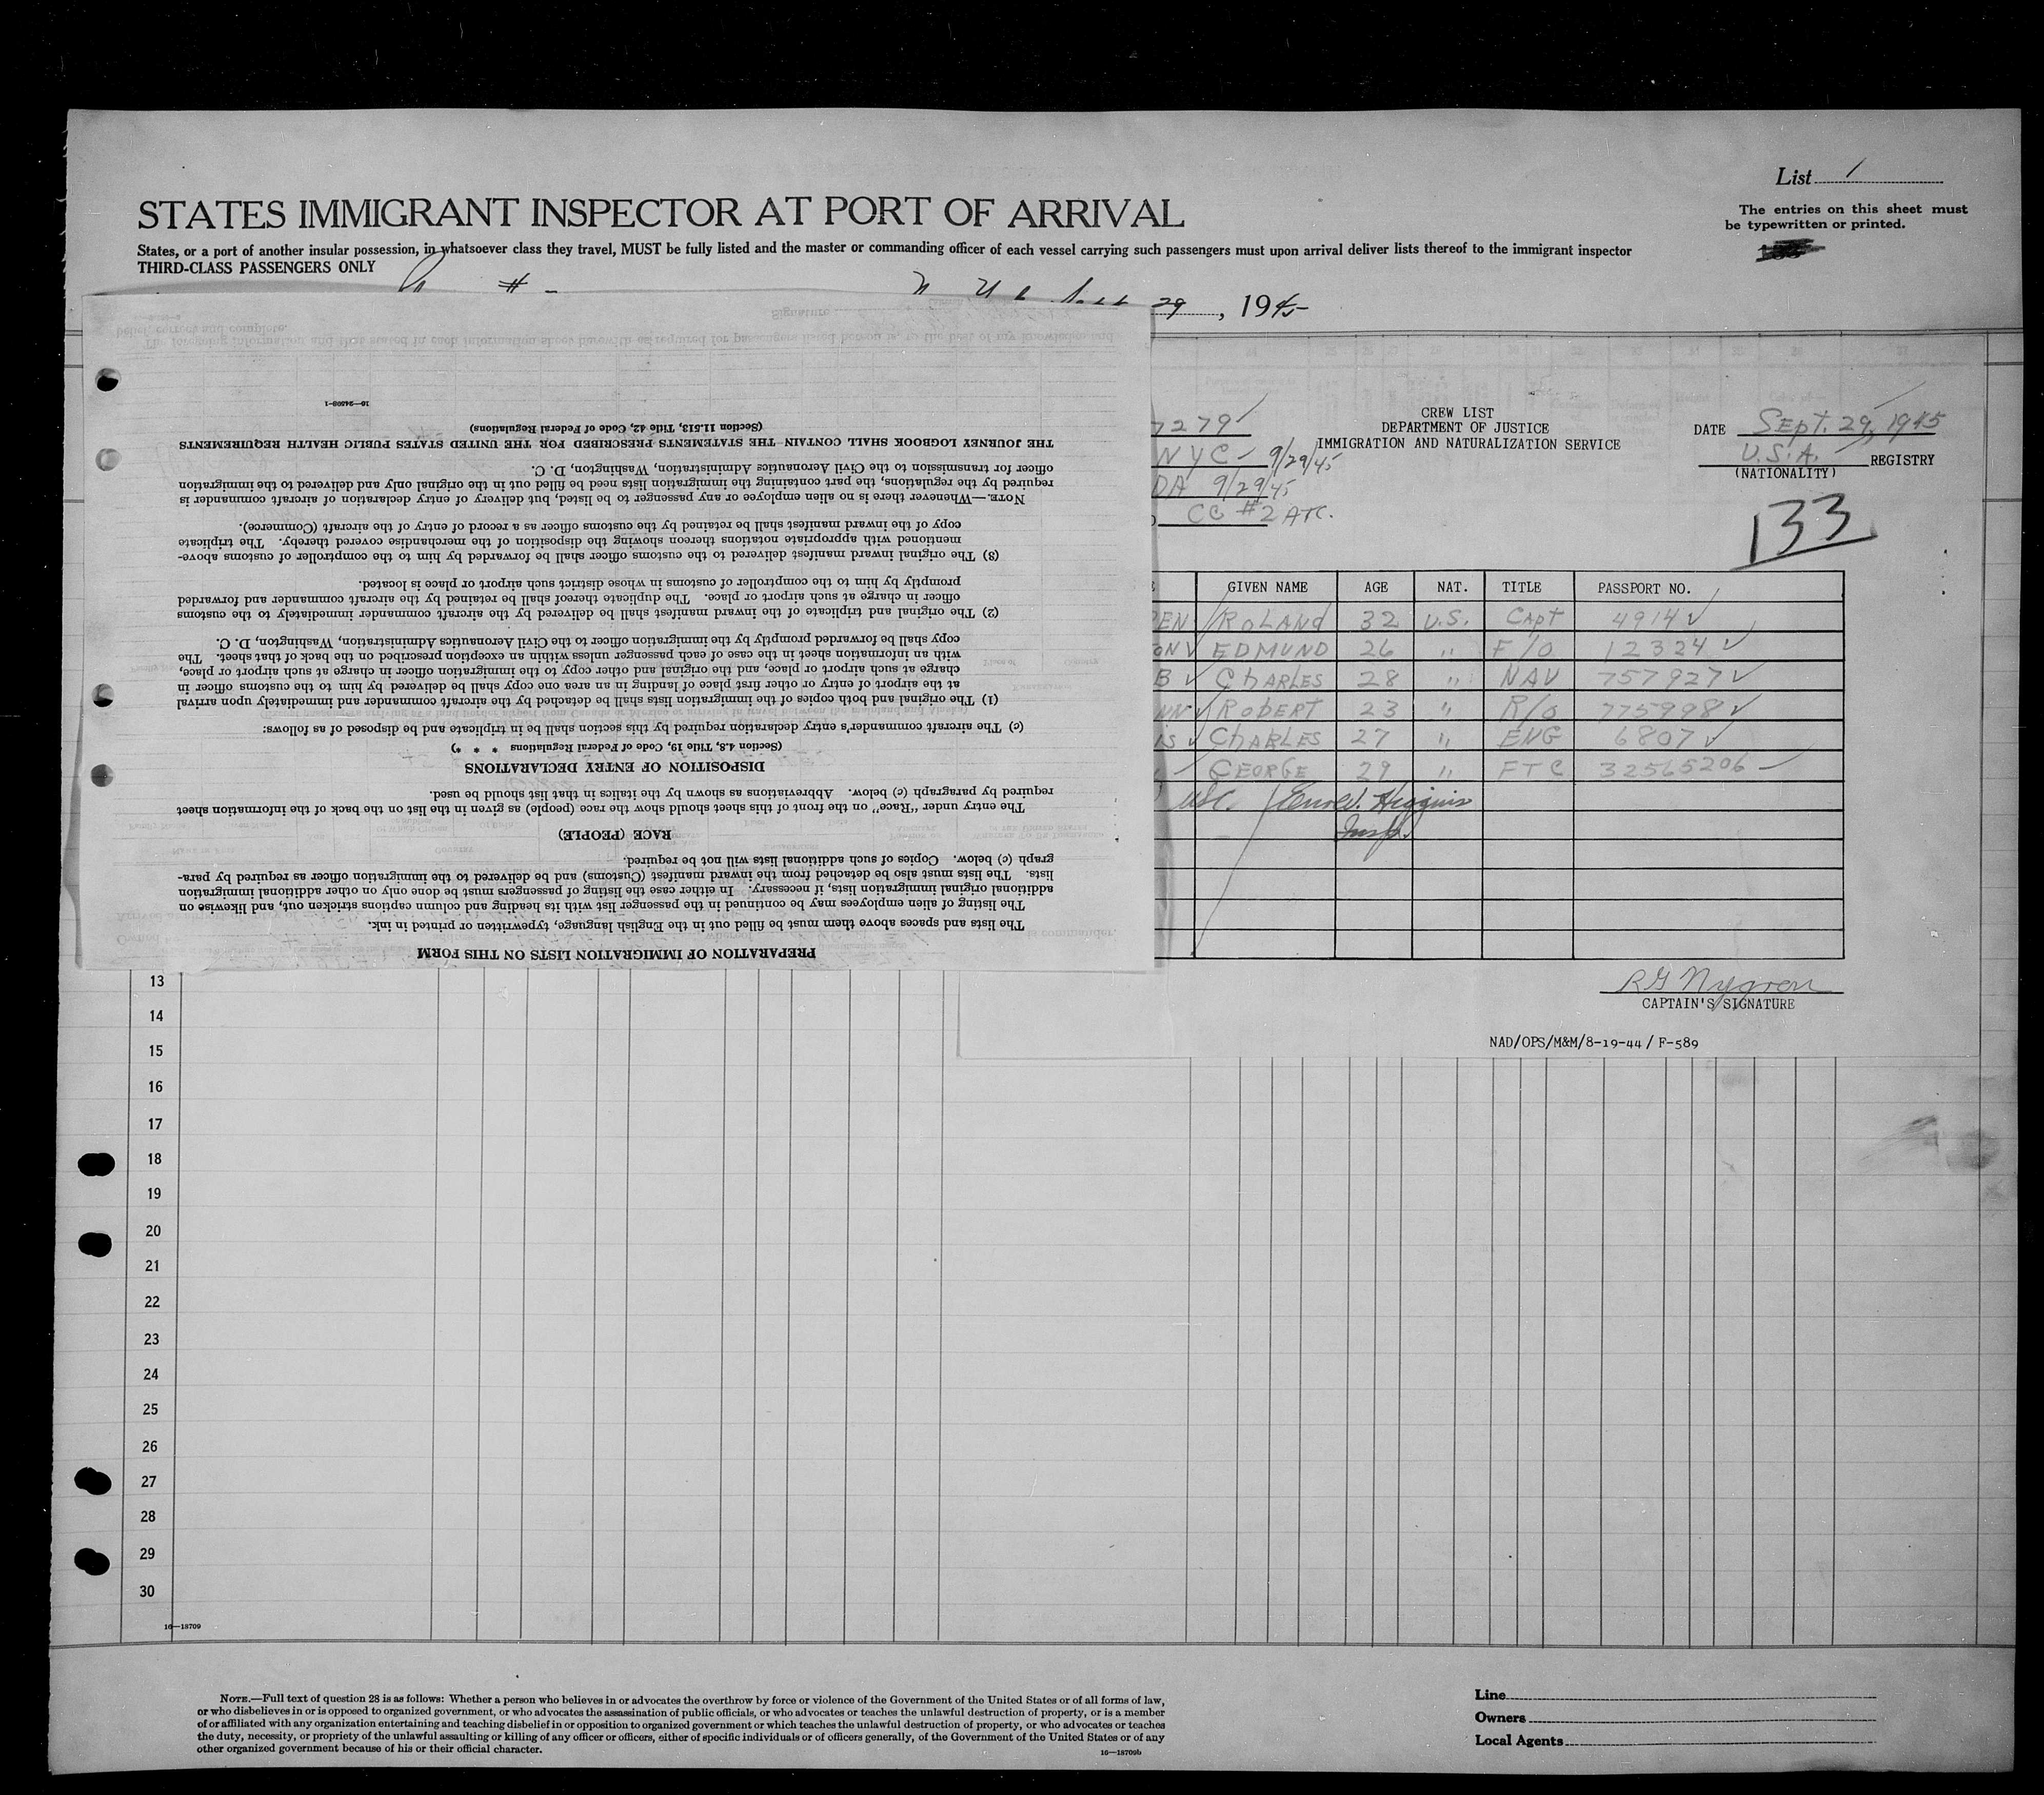 List 1
STATES IMMIGRANT INSPECTOR AT PORT OF ARRIVAL
The entries on this sheet must
be typewritten or printed.
States, or a port of another insular possession, in whatsoever class they travel, MUST be fully listed and the master or commanding officer of each vessel carrying such passengers must upon arrival deliver lists thereof to the immigrant inspector
THIRD-CLASS PASSENGERS ONLY
29, 1945
PREPARATION OF IMMIGRATION LISTS ON THIS FORM
The lists and spaces above them must be filled out in the English language, typewritten or printed in ink.
The listing of alien employees may be continued in the passenger list with its heading and column captions stricken out, and likewise on
additional original immigration lists, if necessary. In either case the listing of passengers must be done only on other additional immigration
lists. The lists must also be detached from the inward manifest (Customs) and be delivered to the immigration officer as required by para-
graph (c) below. Copies of such additional lists will not be required.
RACE (PEOPLE)
The entry under "Race" on the front of this sheet should show the race (people) as given in the list on the back of the information sheet
required by paragraph (c) below. Abbreviations as shown by the italics in that list should be used.
DISPOSITION OF ENTRY DECLARATIONS
(Section 4.8, Title 19, Code of Federal Regulations * * *)
(c) The aircraft commander's entry declaration required by this section shall be in triplicate and be disposed of as follows:
(1) The original and both copies of the immigration lists shall be detached by the aircraft commander and immediately upon arrival
at the airport of entry or other first place of landing in an area one copy shall be delivered by him to the customs officer in
charge at such airport or place, and the original and other copy to the immigration officer in charge at such airport or place,
with an information sheet in the case of each passenger unless within an exception prescribed on the back of that sheet. The
copy shall be forwarded promptly by the immigration officer to the Civil Aeronautics Administration, Washington, D. C.
(2) The original and triplicate of the inward manifest shall be delivered by the aircraft commander immediately to the customs
officer in charge at such airport or place. The duplicate thereof shall be retained by the aircraft commander and forwarded
promptly by him to the comptroller of customs in whose district such airport or place is located.
(3) The original inward manifest delivered to the customs officer shall be forwarded by him to the comptroller of customs above-
mentioned with appropriate notations thereon showing the disposition of the merchandise covered thereby. The triplicate
copy of the inward manifest shall be retained by the customs officer as a record of entry of the aircraft (Commerce).
NOTE.—Whenever there is no alien employee or any passenger to be listed, but delivery of entry declaration of aircraft commander is
required by the regulations, the part containing the immigration lists need be filled out in the original only and delivered to the immigration
officer for transmission to the Civil Aeronautics Administration, Washington, D. C.
THE JOURNEY LOGBOOK SHALL CONTAIN THE STATEMENTS PRESCRIBED FOR THE UNITED STATES PUBLIC HEALTH REQUIREMENTS
(Section 11.513, Title 42, Code of Federal Regulations)
16—24598-1
CREW LIST
DEPARTMENT OF JUSTICE
IMMIGRATION AND NATURALIZATION SERVICE
7279
NYC - 9/29/45
DA 9/29/45
CC #2 ATC.
DATE Sept. 29, 1945
U.S.A. REGISTRY
(NATIONALITY)
133
GIVEN NAME AGE NAT. TITLE PASSPORT NO.
REN ROLAND 32 U.S. CAPT 4914 ✓
ON ✓ EDMUND 26 " F/O 12324 ✓
B ✓ CHARLES 28 " NAV 757927 ✓
NN ✓ ROBERT 23 " R/O 775998 ✓
IS ✓ CHARLES 27 " ENG 6807 ✓
GEORGE 29 " FTC 32565206
USC. Higgins
Insp.
R G Nygren
CAPTAIN'S SIGNATURE
NAD/OPS/M&M/8-19-44 / F-589
13
14
15
16
17
18
19
20
21
22
23
24
25
26
27
28
29
30
16—18709
NOTE.—Full text of question 28 is as follows: Whether a person who believes in or advocates the overthrow by force or violence of the Government of the United States or of all forms of law,
or who disbelieves in or is opposed to organized government, or who advocates the assassination of public officials, or who advocates or teaches the unlawful destruction of property, or is a member
of or affiliated with any organization entertaining and teaching disbelief in or opposition to organized government or which teaches the unlawful destruction of property, or who advocates or teaches
the duty, necessity, or propriety of the unlawful assaulting or killing of any officer or officers, either of specific individuals or of officers generally, of the Government of the United States or of any
other organized government because of his or their official character.
16—18709b
Line
Owners
Local Agents